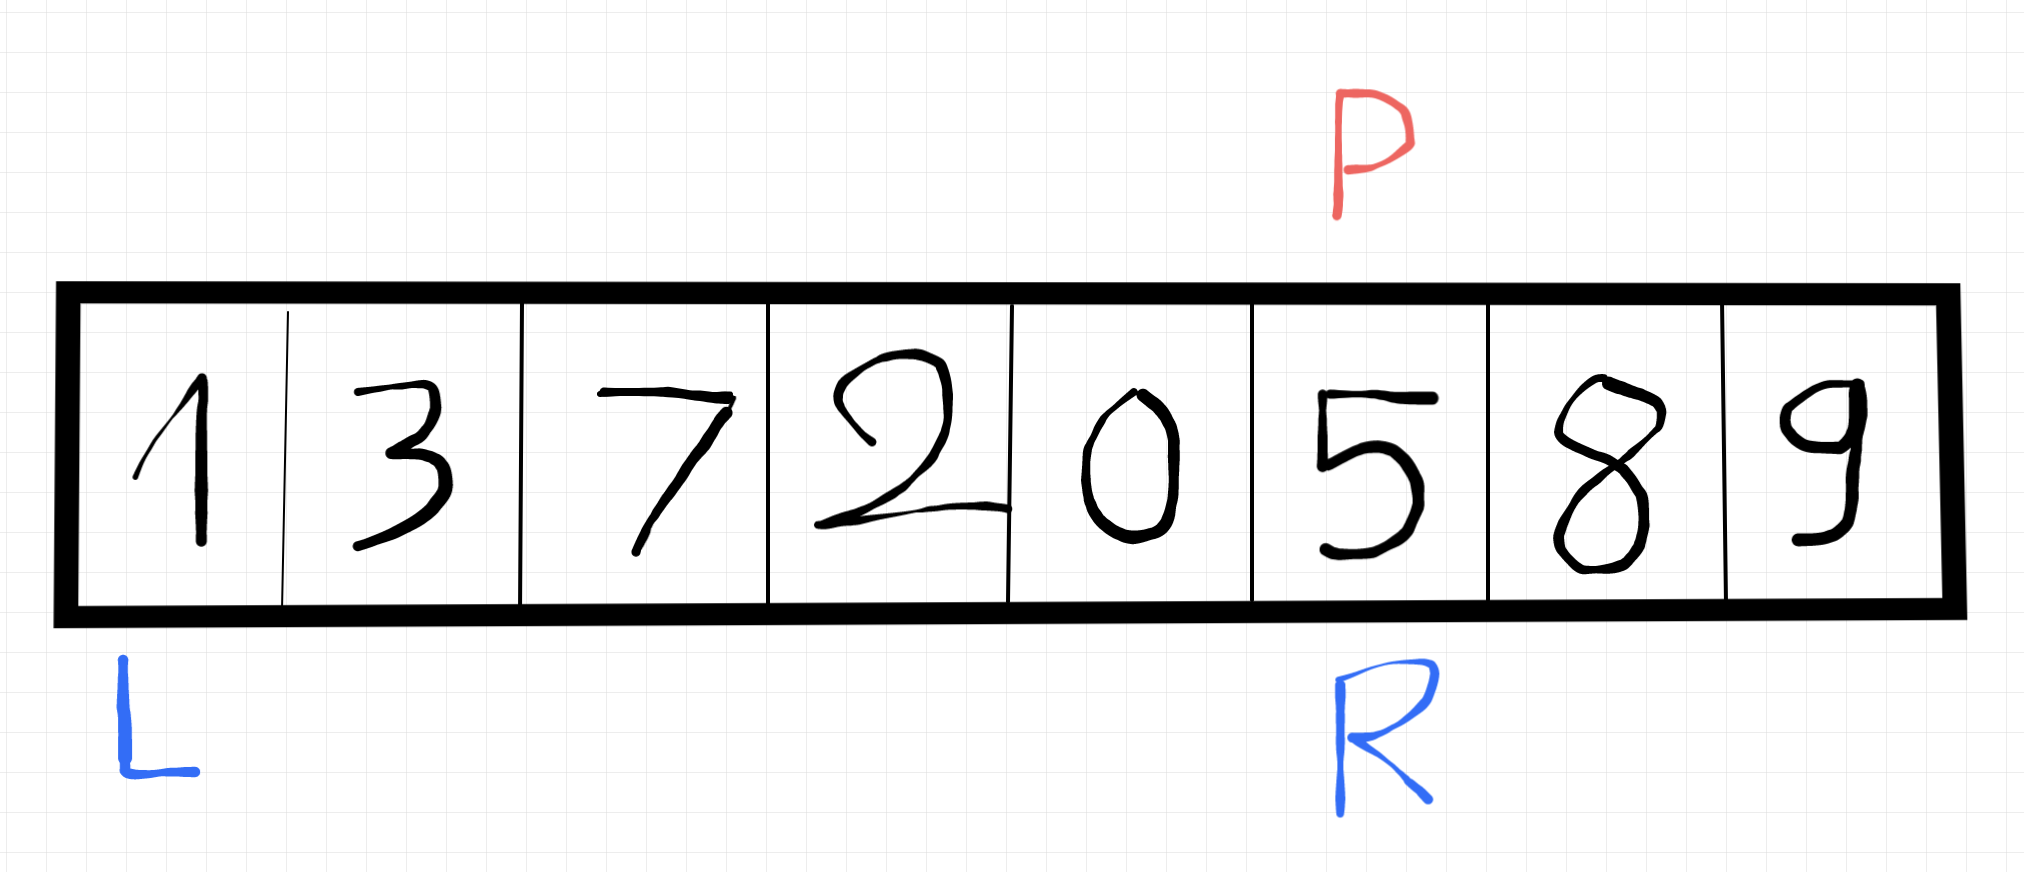 P
1 3 7 2 0 5 8 9
L R